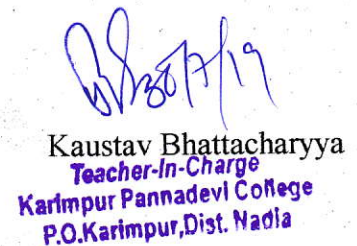 30/7/19
Kaustav Bhattacharyya
Teacher-In-Charge
Karimpur Pannadevi College
P.O.Karimpur,Dist. Nadia